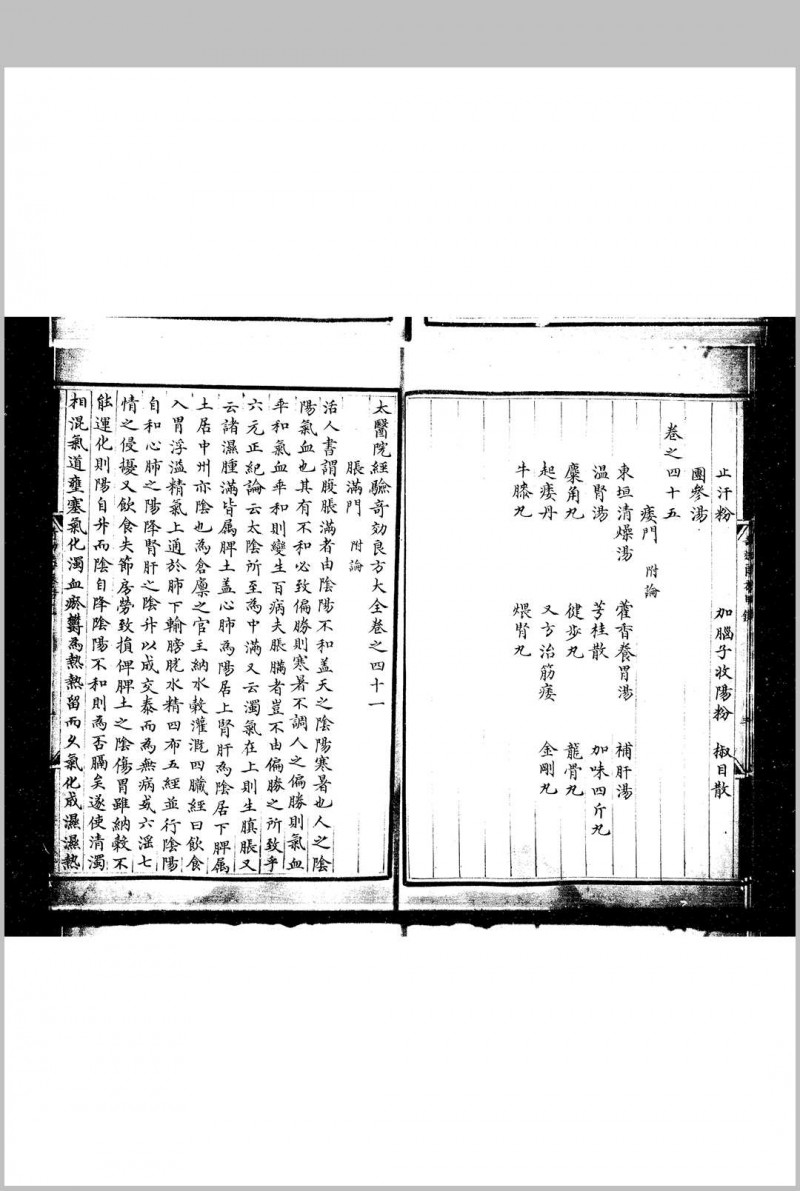 止汗粉 加腦子收陽粉 椒目散
團參湯
卷之四十五
痿門 附論
東垣清燥湯 藿香養胃湯 補肝湯
溫腎湯 芎桂散 加味四斤丸
麋角丸 健步丸 龍骨丸
起痿丹 又方治筋痿 金剛丸
牛膝丸 煨腎丸
太醫院經驗奇効良方大全卷之四十一
脹滿門 附論
活人書謂腹脹滿者由陰陽不和盖天之陰陽寒暑也人之陰
陽氣血也其有不和必致偏勝則寒暑不調人之偏勝則氣血
乎和氣血乎和則變生百病夫脹䐽者豈不由偏勝之所致乎
六元正紀論云太陰所至為中滿又云濁氣在上則生䐜脹又
云諸濕腫滿皆属脾土盖心肺為陽居上腎肝為陰居下脾属
土居中州亦陰也為倉廩之官主納水穀灌溉四臟經曰飲食
入胃浮溢精氣上通於肺下輸膀胱水精四布五經並行陰陽
自和心肺之陽降腎肝之陰升以成交泰而為無病或六淫七
情之侵擾又飲食失節房勞致損俾脾土之陰傷胃雖納穀不
能運化則陽自升而陰自降陰陽不和則為否膈矣遂使清濁
相混氣道壅塞氣化濁血瘀鬱為熱熱留而久氣化成濕濕熱